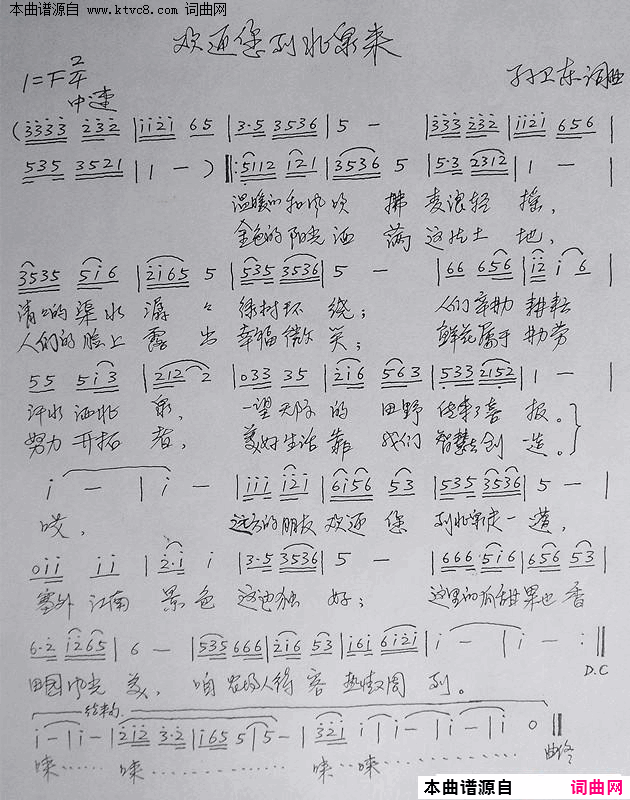 本曲谱源自
www.ktvc8.com 词曲网
欢迎您到北泉来
1=F 2/4
中速
孙卫东 词曲
(3333 232 | 1121 65 | 3·5 3536 | 5 — | 333 232 | 1121 656 |
535 3521 | 1 — ) ‖: 5112 121 | 3536 5 | 5·3 2312 | 1 — |
温暖的和风吹拂麦浪轻摇,
金色的阳光洒满这片土地,
3535 516 | 2165 5 | 535 3536 | 5 — | 66 656 | 12 1 6 |
清清的渠水潺潺绿树环绕; 人们辛勤耕耘
人们的脸上露出幸福微笑; 鲜花属于勤劳
55 513 | 212 2 | 033 35 | 216 563 | 533 2152 | 1 — |
汗水洒北泉 一望无际的田野传来了喜报。
努力开拓者, 美好生活靠我们智慧去创造。
1 — | 1 — | 111 121 | 6156 53 | 535 3536 | 5 — |
哎, 远方的朋友欢迎您到北泉走一遭,
011 11 | 2·1 1 | 3·5 3536 | 5 — | 666·516 | 656 53 |
塞外江南景色这边独好; 这里的瓜甜果也香
6·2 1265 | 6 — | 535 666 | 216 53 | 161 6121 | 1 — | 1 — :‖
D.C
田园风光美, 咱农场人待客热情周到。
结束句
1 — | 1 — | 212 3·2 | 165 5 | 5 — | 321 1 | 1 — | 1 — | 1 0 ‖
曲终
唻…… 唻…… 唻… 唻……
本曲谱源自 词曲网